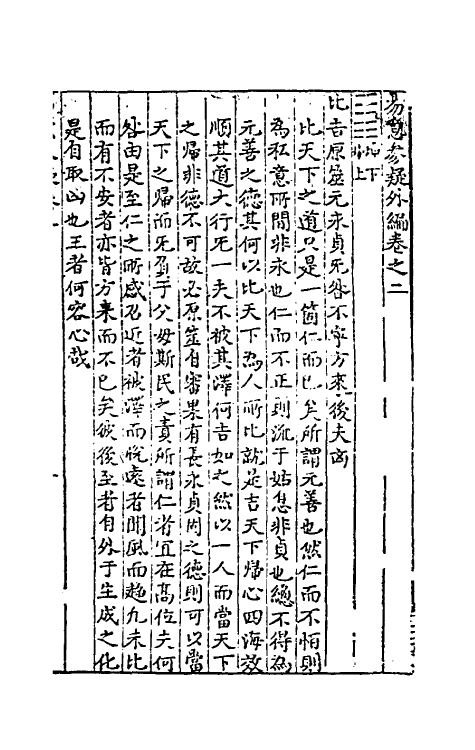 易象參疑外編卷之二
坤下
坎上
比吉原筮元永貞无咎不寧方來後夫凶
比天下之道只是一箇仁而已矣所謂元善也然仁而不恒則
為私意所間非永也仁而不正則流于姑息非貞也總不得為
元善之德其何以比天下為人所比就是吉天下歸心四海效
順其道大行无一夫不被其澤何吉如之然以一人而當天下
之歸非德不可故必原筮自審果有長永貞固之德則可以當
天下之歸而无咎于父母斯民之責所謂仁者宜在高位夫何
咎由是至仁之所感召近者被澤而悅遠者聞風而趨凡未比
而有不安者亦皆方來而不已矣彼後至者自外于生成之化
是自取凶也王者何容心哉